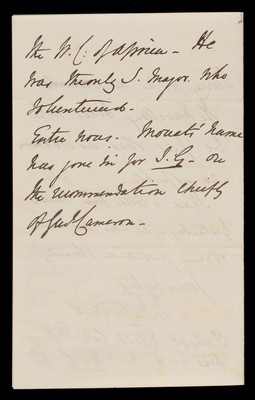 the W. C. of Africa - He
was the only S. Major who
volunteered.
Entre nous. Mouat's name
has gone in for I.G. on
the recommendation chiefly
of Genl Cameron -